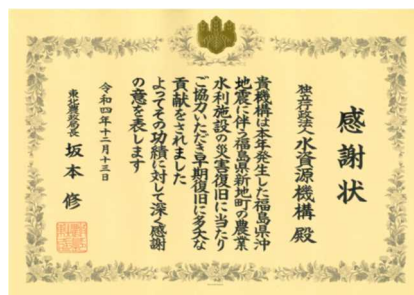 感謝状
独立行政法人水資源機構 殿
貴機構は本年発生した福島県沖
地震に伴う福島県新地町の農業
水利施設の災害復旧に当たり
ご協力いただき早期復旧に多大な
貢献をされました
よってその功績に対して深く感謝
の意を表します
令和四年十二月十三日
東北農政局長 坂本 修